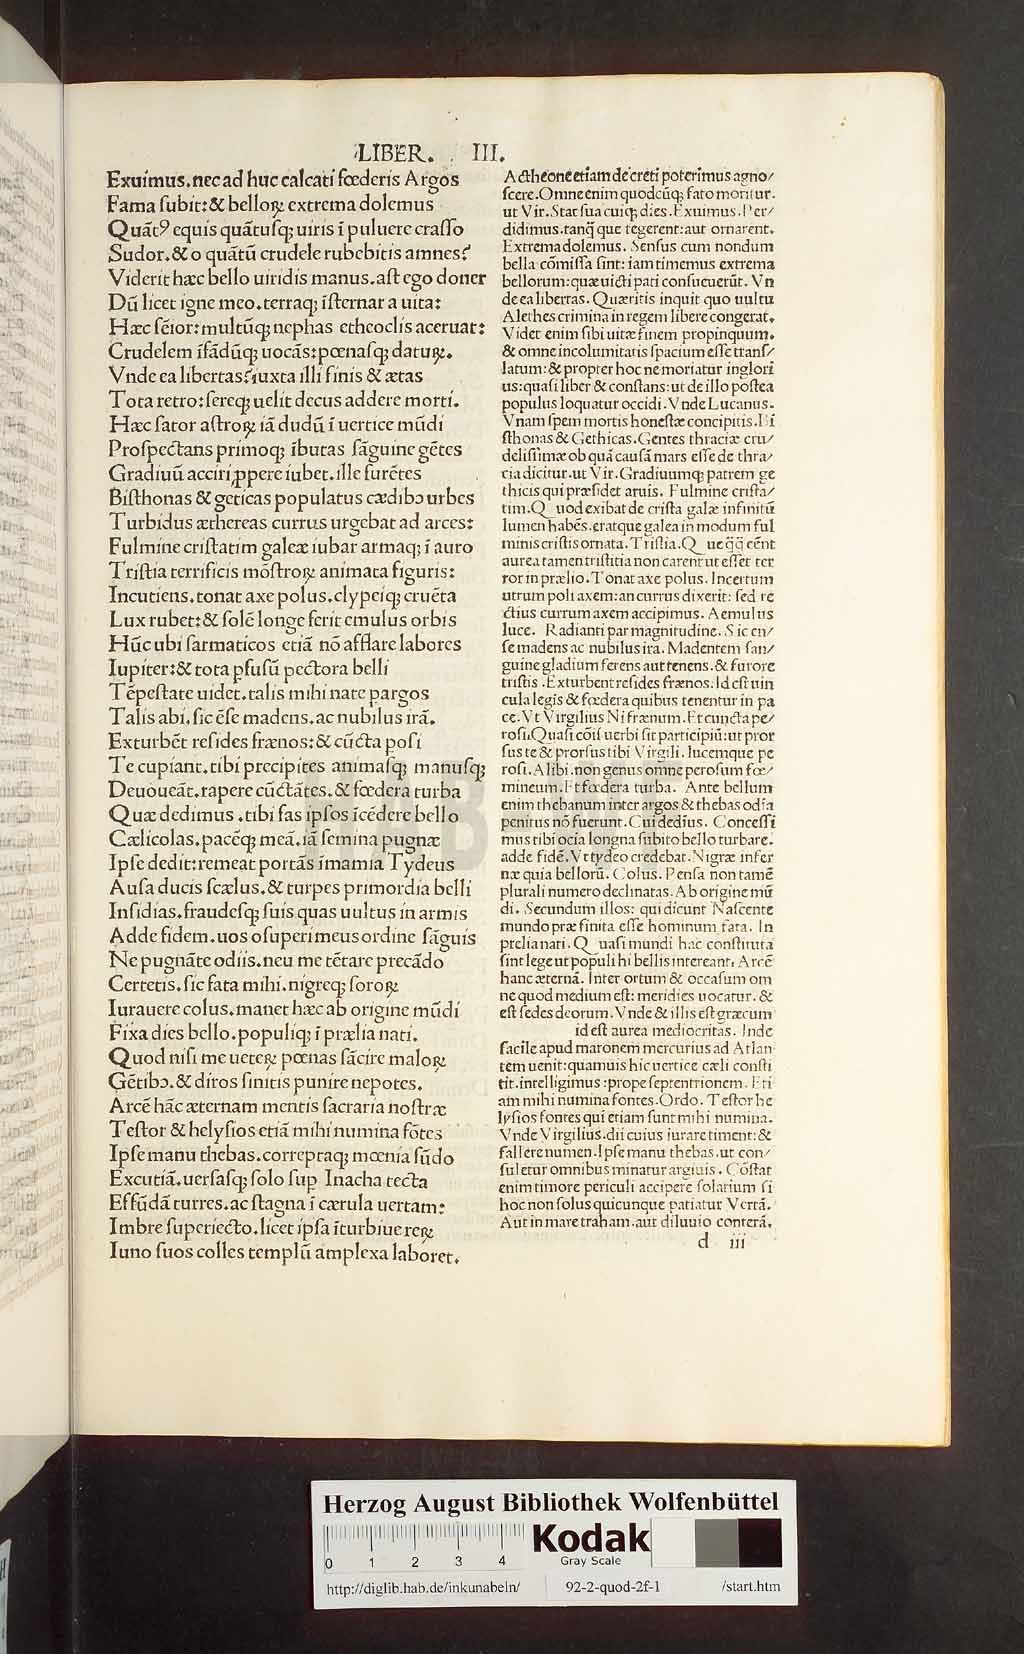 LIBER. III.
Exuimus.nec ad huc calcati fœderis Argos
Fama subit:& belloꝝ extrema dolemus
Quãtꝰ equis quãtusqꝫ uiris ĩ puluere crasso
Sudor.& o quãtũ crudele rubebitis amnes?
Viderit hæc bello uiridis manus.ast ego donec
Dũ licet igne meo.terraqꝫ ĩsternar a uita:
Hæc sẽior:multũqꝫ nephas etheoclis aceruat:
Crudelem ĩfãdũqꝫ uocãs:pœnasqꝫ datuꝝ.
Vnde ea libertas?iuxta illi finis & ætas
Tota retro:sereqꝫ uelit decus addere morti.
Hæc sator astroꝝ iã dudũ ĩ uertice mũdi
Prospectans primoqꝫ ĩbutas sãguine gẽtes
Gradiuũ acciri ꝓpere iubet.ille furẽtes
Bisthonas & geticas populatus cædibꝰ urbes
Turbidus æthereas currus urgebat ad arces:
Fulmine cristatim galeæ iubar armaqꝫ ĩ auro
Tristia terrificis mõstroꝝ animata figuris:
Incutiens.tonat axe polus.clypeiqꝫ cruẽta
Lux rubet:& solẽ longe ferit emulus orbis
Hũc ubi sarmaticos etiã nõ afflare labores
Iupiter:& tota pfusũ pectora belli
Tẽpestate uidet.talis mihi nate pargos
Talis abi.sic ẽse madens.ac nubilus irã.
Exturbẽt resides frænos:& cũcta posi
Te cupiant.tibi precipites animasqꝫ manusqꝫ
Deuoueãt.rapere cũctãtes.& fœdera turba
Quæ dedimus.tibi fas ipsos ĩcẽdere bello
Cælicolas.pacẽqꝫ meã.iã semina pugnæ
Ipse dedit:remeat portãs ĩmamia Tydeus
Ausa ducis scælus.& turpes primordia belli
Insidias.fraudesqꝫ suis quas uultus in armis
Adde fidem.uos o superi meus ordine sãguis
Ne pugnãte odiis.neu me tẽtare precãdo
Certetis.sic fata mihi.nigreqꝫ soroꝝ
Iurauere colus.manet hæc ab origine mũdi
Fixa dies bello.populiqꝫ ĩ prælia nati.
Quod nisi me ueteꝝ pœnas sãcire maloꝝ
Gẽtibꝰ.& diros sinitis punire nepotes.
Arcẽ hãc æternam mentis sacraria nostræ
Testor & helysios etiã mihi numina fõtes
Ipse manu thebas.correptaqꝫ mœnia fũdo
Excutiã.uersasqꝫ solo sup Inacha tecta
Effũdã turres.ac stagna ĩ cærula uertam:
Imbre superiecto.licet ipsa ĩ turbiue reꝝ
Iuno suos colles templũ amplexa laboret.
Actheone etiam de creti poterimus agno/
scere.Omne enim quodcũqꝫ fato moritur.
ut Vir.Stat sua cuiqꝫ dies.Exuimus.Per/
didimus.tanq̃ que tegerent:aut ornarent.
Extrema dolemus. Sensus cum nondum
bella cõmissa sint:iam timemus extrema
bellorum:quæ uicti pati consueuerũt. Vn
de ea libertas. Quæritis inquit quo uultu
Alethes crimina in regem libere congerat.
Videt enim sibi uitæ finem propinquum.
& omne incolumitatis spacium esse trans/
latum:& propter hoc ne moriatur inglori
us:quasi liber & constans:ut de illo postea
populus loquatur occidi.Vnde Lucanus.
Vnam spem mortis honestæ concipitis.Bi
sthonas & Gethicas.Gentes thraciæ cru/
delissimæ ob quã causã mars esse de thra/
cia dicitur.ut Vir.Gradiuumqꝫ patrem ge
thicis qui præsidet aruis. Fulmine crista/
tim.Quod exibat de crista galæ infinitũ
lumen habẽs.eratque galea in modum ful
minis cristis ornata.Tristia.Que q̃q̃ eẽnt
aurea tamen tristitia non carent ut esset ter
ror in prælio.Tonat axe polus.Incertum
utrum poli axem:an currus dixerit: sed re
ctius currum axem accipimus. Aemulus
luce. Radianti par magnitudine.Sic en/
se madens ac nubilus ira. Madentem san/
guine gladium ferens aut tenens.& furore
tristis.Exturbent resides frænos.Id est uin
cula legis & fœdera quibus tenentur in pa
ce.Vt Virgilius Ni frænum.Et cuncta pe/
rosi.Quasi cõis uerbi sit participiũ:ut pror
sus te & prorsus tibi Virgili. lucemque pe
rosi.Alibi.non genus omne perosum fœ/
mineum.Et fœdera turba. Ante bellum
enim thebanum inter argos & thebas odia
penitus nõ fuerunt.Cui dedius. Concessi
mus tibi ocia longna subito bello turbare.
adde fidẽ.Vt tydeo credebat.Nigræ infer
næ quia bellorũ. Colus. Pensa non tamẽ
plurali numero declinatas.Ab origine mũ
di. Secundum illos: qui dicunt Nascente
mundo præfinita esse hominum fata. In
prelia nati.Quasi mundi hac constituta
sint lege ut populi hi bellis intereant.Arcẽ
hanc æternã.Inter ortum & occasum om
ne quod medium est: meridies uocatur. &
est sedes deorum.Vnde & illis est græcum
id est aurea mediocritas. Inde
facile apud maronem mercurius ad Atlan
tem uenit:quamuis hic uertice cæli consti
tit.intelligimus:prope septentrionem. Eti
am mihi numina fontes.Ordo. Testor he
lysios fontes qui etiam sunt mihi numina.
Vnde Virgilius.dii cuius iurare timent:&
fallere numen.Ipse manu thebas.ut con/
suletur omnibus minatur argiuis. Cõstat
enim timore periculi accipere solatium si
hoc non solus quicunque patiatur Vertã.
Aut in mare traham.aut diluuio conterã.
d iii
HAB-WF
Herzog August Bibliothek Wolfenbüttel
0 1 2 3 4
Kodak
Gray Scale
http://diglib.hab.de/inkunabeln/ 92-2-quod-2f-1 /start.htm